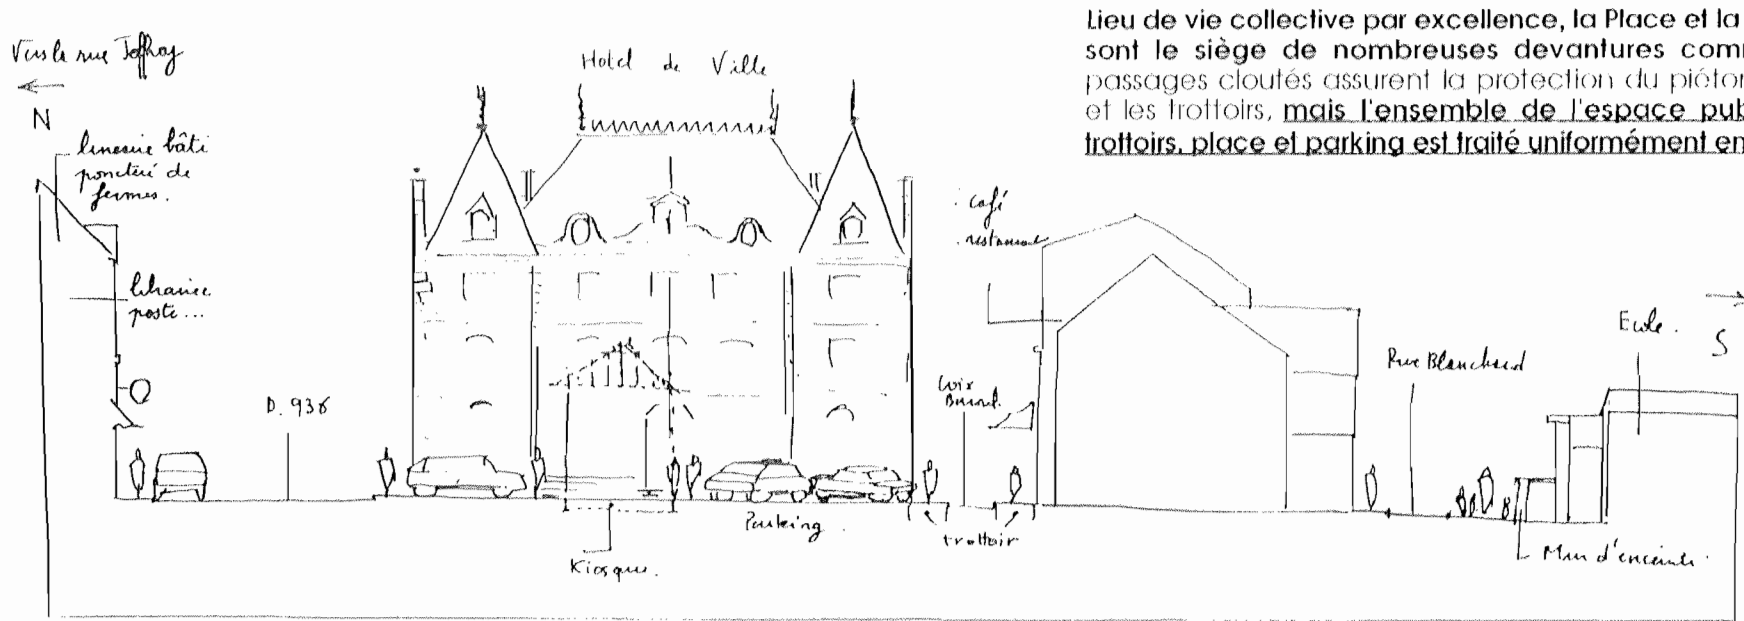 Lieu de vie collective par excellence, la Place et la
sont le siège de nombreuses devantures com
passages cloutés assurent la protection du piéton
et les trottoirs, mais l'ensemble de l'espace pub
trottoirs, place et parking est traité uniformément en
Vers la rue Joffroy
N
linéaire bâti
ponctué de
fermes.
librairie
poste...
D. 936
Hotel de Ville
Kiosque.
Parking.
trottoir
café
restaurant
Rue Blanchard
Ecole.
S
Mur d'enceinte.